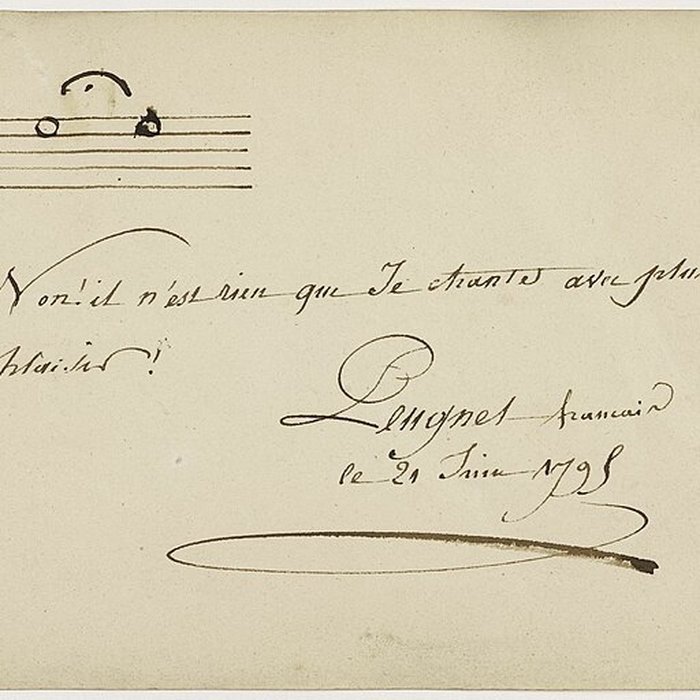 Non! il n'est rien que Je chante avec plus
plaisir!
Peugnet francais
le 21 Juin 1795